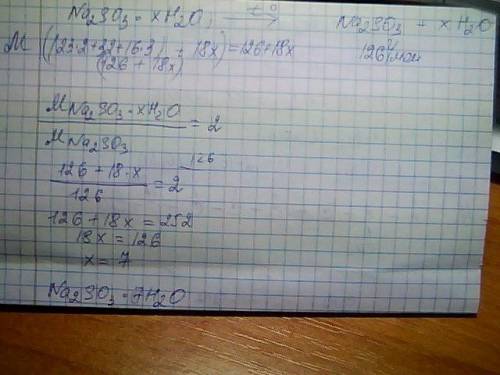 Na₂SO₃ · xH₂O t° → Na₂SO₃ + xH₂O
M ((23·2+32+16·3) + 18x) = 126+18x 126 г/моль
(126 + 18x)
MNa₂SO₃ · xH₂O / MNa₂SO₃ = 2
126 + 18·x / 126 = 2 126
126 + 18x = 252
18x = 126
x = 7
Na₂SO₃ · 7H₂O